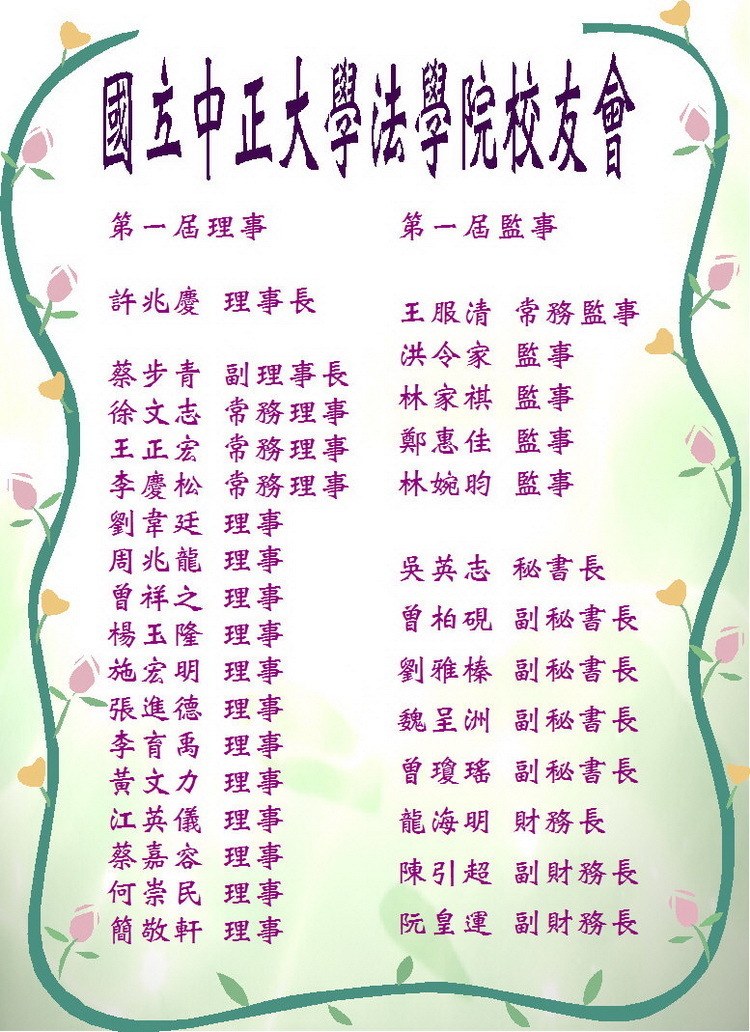 國立中正大學法學院校友會
第一屆理事
許兆慶 理事長
蔡步青 副理事長
徐文志 常務理事
王正宏 常務理事
李慶松 常務理事
劉韋廷 理事
周兆龍 理事
曾祥之 理事
楊玉隆 理事
施宏明 理事
張進德 理事
李育禹 理事
黃文力 理事
江英儀 理事
蔡嘉容 理事
何崇民 理事
簡敬軒 理事
第一屆監事
王服清 常務監事
洪令家 監事
林家祺 監事
鄭惠佳 監事
林婉昀 監事
吳英志 秘書長
曾柏硯 副秘書長
劉雅榛 副秘書長
魏呈洲 副秘書長
曾瓊瑤 副秘書長
龍海明 財務長
陳引超 副財務長
阮皇運 副財務長